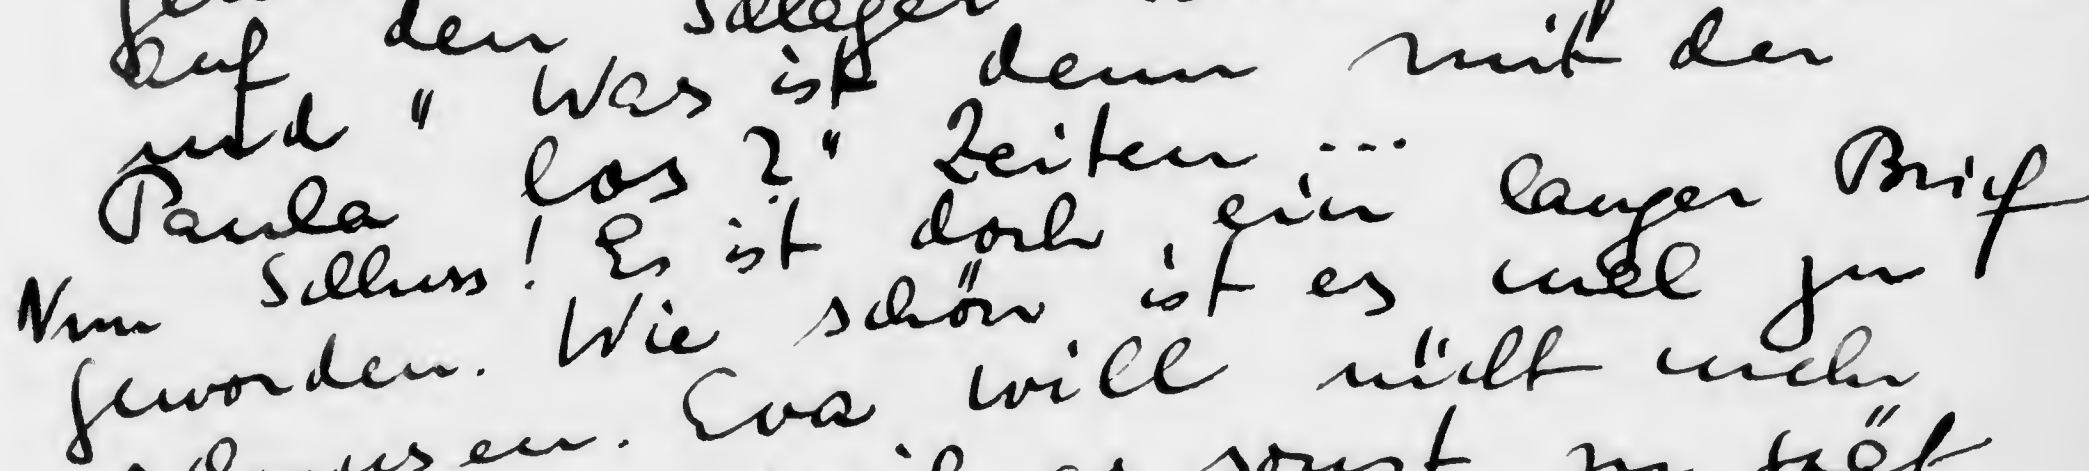 auf den Schlager
und " Was ist denn mit der
Paula los?" Zeiten ...
Nun Schluss! Es ist doch ein langer Brief
geworden. Wie schön ist es mal zu
schmusen. Eva will nicht mehr
es sonst zu spät